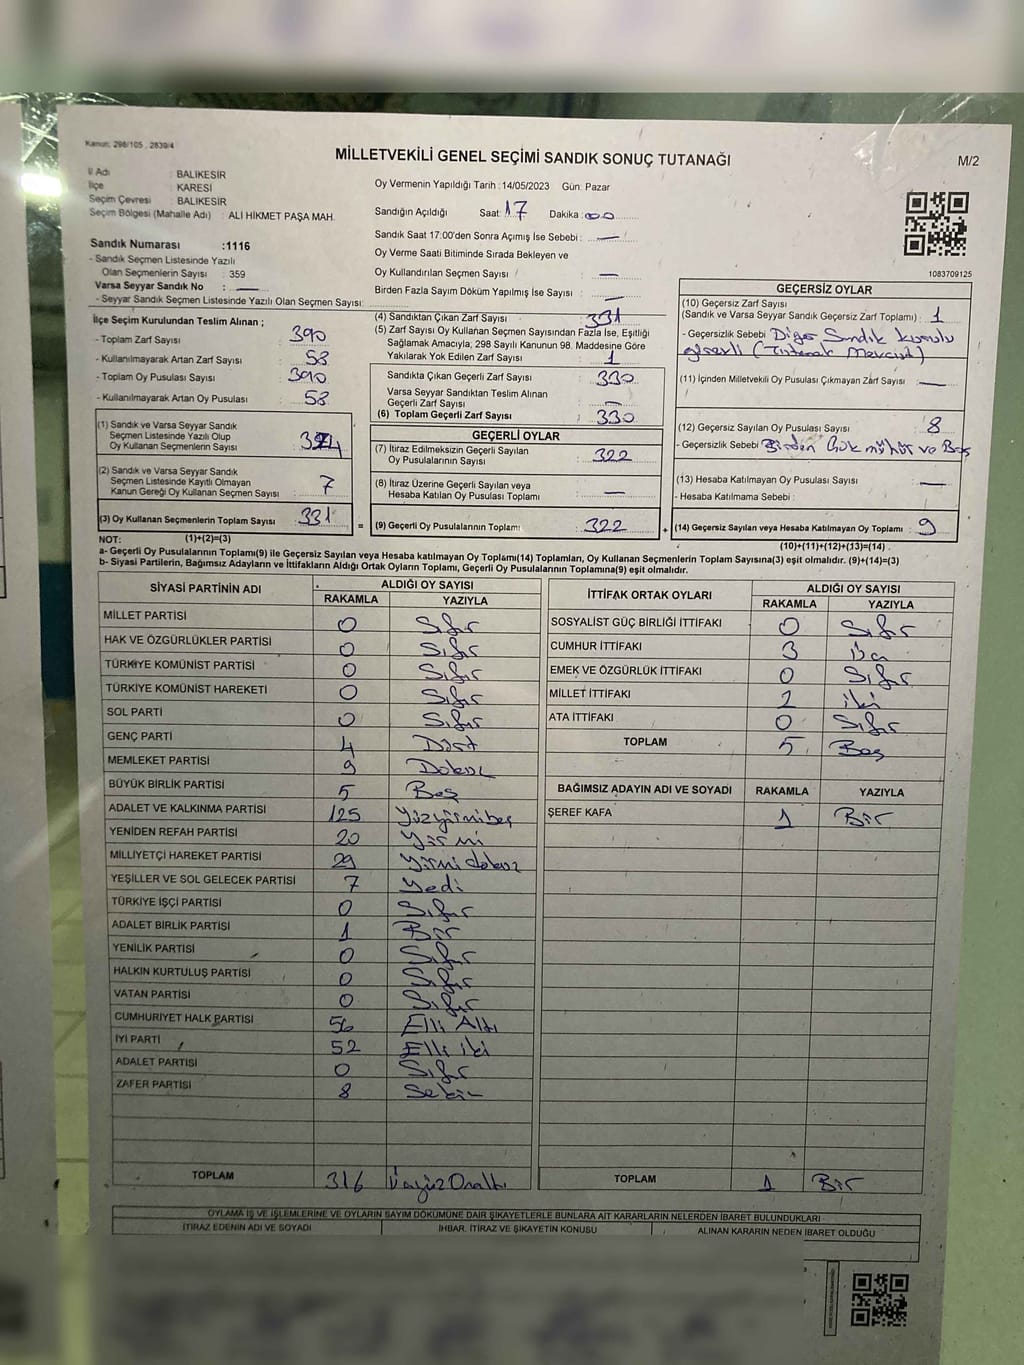 Kanun; 298/105 , 2839/4
MİLLETVEKİLİ GENEL SEÇİMİ SANDIK SONUÇ TUTANAĞI
M/2
İl Adı : BALIKESİR
İlçe : KARESİ
Seçim Çevresi : BALIKESİR
Seçim Bölgesi (Mahalle Adı) : ALİ HİKMET PAŞA MAH.
Sandık Numarası :1116
- Sandık Seçmen Listesinde Yazılı
Olan Seçmenlerin Sayısı : 359
Varsa Seyyar Sandık No : —
- Seyyar Sandık Seçmen Listesinde Yazılı Olan Seçmen Sayısı:
Oy Vermenin Yapıldığı Tarih :14/05/2023 Gün: Pazar
Sandığın Açıldığı Saat: 17 Dakika : 00
Sandık Saat 17:00'den Sonra Açımış İse Sebebi : —
Oy Verme Saati Bitiminde Sırada Bekleyen ve
Oy Kullandırılan Seçmen Sayısı : —
Birden Fazla Sayım Döküm Yapılmış İse Sayısı : —
1083709125
İlçe Seçim Kurulundan Teslim Alınan ;
- Toplam Zarf Sayısı : 390
- Kullanılmayarak Artan Zarf Sayısı : 58
- Toplam Oy Pusulası Sayısı : 390
- Kullanılmayarak Artan Oy Pusulası : 58
(1) Sandık ve Varsa Seyyar Sandık
Seçmen Listesinde Yazılı Olup
Oy Kullanan Seçmenlerin Sayısı :
(2) Sandık ve Varsa Seyyar Sandık
Seçmen Listesinde Kayıtlı Olmayan
Kanun Gereği Oy Kullanan Seçmen Sayısı : 7
(3) Oy Kullanan Seçmenlerin Toplam Sayısı : 331
(4) Sandıktan Çıkan Zarf Sayısı : 331
(5) Zarf Sayısı Oy Kullanan Seçmen Sayısından Fazla İse, Eşitliği
Sağlamak Amacıyla; 298 Sayılı Kanunun 98. Maddesine Göre
Yakılarak Yok Edilen Zarf Sayısı : 1
Sandıkta Çıkan Geçerli Zarf Sayısı : 330
Varsa Seyyar Sandıktan Teslim Alınan
Geçerli Zarf Sayısı : —
(6) Toplam Geçerli Zarf Sayısı : 330
GEÇERLİ OYLAR
(7) İtiraz Edilmeksizin Geçerli Sayılan
Oy Pusulalarının Sayısı : 322
(8) İtiraz Üzerine Geçerli Sayılan veya
Hesaba Katılan Oy Pusulası Toplamı : —
= (9) Geçerli Oy Pusulalarının Toplamı : 322
GEÇERSİZ OYLAR
(10) Geçersiz Zarf Sayısı
(Sandık ve Varsa Seyyar Sandık Geçersiz Zarf Toplamı) : 1
- Geçersizlik Sebebi : Diğer Sandık kurulu
(11) İçinden Milletvekili Oy Pusulası Çıkmayan Zarf Sayısı : —
(12) Geçersiz Sayılan Oy Pusulası Sayısı : 8
- Geçersizlik Sebebi : Birden Çok mühür ve Boş
(13) Hesaba Katılmayan Oy Pusulası Sayısı : —
- Hesaba Katılmama Sebebi :
+ (14) Geçersiz Sayılan veya Hesaba Katılmayan Oy Toplamı : 9
NOT: (1)+(2)=(3)
(10)+(11)+(12)+(13)=(14)
a- Geçerli Oy Pusulalarının Toplamı(9) ile Geçersiz Sayılan veya Hesaba katılmayan Oy Toplamı(14) Toplamları, Oy Kullanan Seçmenlerin Toplam Sayısına(3) eşit olmalıdır. (9)+(14)=(3)
b- Siyasi Partilerin, Bağımsız Adayların ve İttifakların Aldığı Ortak Oyların Toplamı, Geçerli Oy Pusulalarının Toplamına(9) eşit olmalıdır.
SİYASİ PARTİNİN ADI
ALDIĞI OY SAYISI
RAKAMLA YAZIYLA
MİLLET PARTİSİ 0 Sıfır
HAK VE ÖZGÜRLÜKLER PARTİSİ 0 Sıfır
TÜRKİYE KOMÜNİST PARTİSİ 0 Sıfır
TÜRKİYE KOMÜNİST HAREKETİ 0 Sıfır
SOL PARTİ 0 Sıfır
GENÇ PARTİ 4 Dört
MEMLEKET PARTİSİ 9 Dokuz
BÜYÜK BİRLİK PARTİSİ 5 Beş
ADALET VE KALKINMA PARTİSİ 125 Yüzyirmibeş
YENİDEN REFAH PARTİSİ 20 Yirmi
MİLLİYETÇİ HAREKET PARTİSİ 29 Yirmi dokuz
YEŞİLLER VE SOL GELECEK PARTİSİ 7 Yedi
TÜRKİYE İŞÇİ PARTİSİ 0 Sıfır
ADALET BİRLİK PARTİSİ 1 Bir
YENİLİK PARTİSİ 0 Sıfır
HALKIN KURTULUŞ PARTİSİ 0 Sıfır
VATAN PARTİSİ 0 Sıfır
CUMHURİYET HALK PARTİSİ 56 Elli Altı
İYİ PARTİ 52 Elli iki
ADALET PARTİSİ 0 Sıfır
ZAFER PARTİSİ 8 Sekiz
TOPLAM 316 Üçyüz Onaltı
İTTİFAK ORTAK OYLARI
ALDIĞI OY SAYISI
RAKAMLA YAZIYLA
SOSYALİST GÜÇ BİRLİĞİ İTTİFAKI 0 Sıfır
CUMHUR İTTİFAKI 3 Üç
EMEK VE ÖZGÜRLÜK İTTİFAKI 0 Sıfır
MİLLET İTTİFAKI 2 iki
ATA İTTİFAKI 0 Sıfır
TOPLAM 5 Beş
BAĞIMSIZ ADAYIN ADI VE SOYADI RAKAMLA YAZIYLA
ŞEREF KAFA 1 Bir
TOPLAM 1 Bir
OYLAMA İŞ VE İŞLEMLERİNE VE OYLARIN SAYIM DÖKÜMÜNE DAİR ŞİKAYETLERLE BUNLARA AİT KARARLARIN NELERDEN İBARET BULUNDUKLARI
İTİRAZ EDENİN ADI VE SOYADI İHBAR, İTİRAZ VE ŞİKAYETİN KONUSU ALINAN KARARIN NEDEN İBARET OLDUĞU